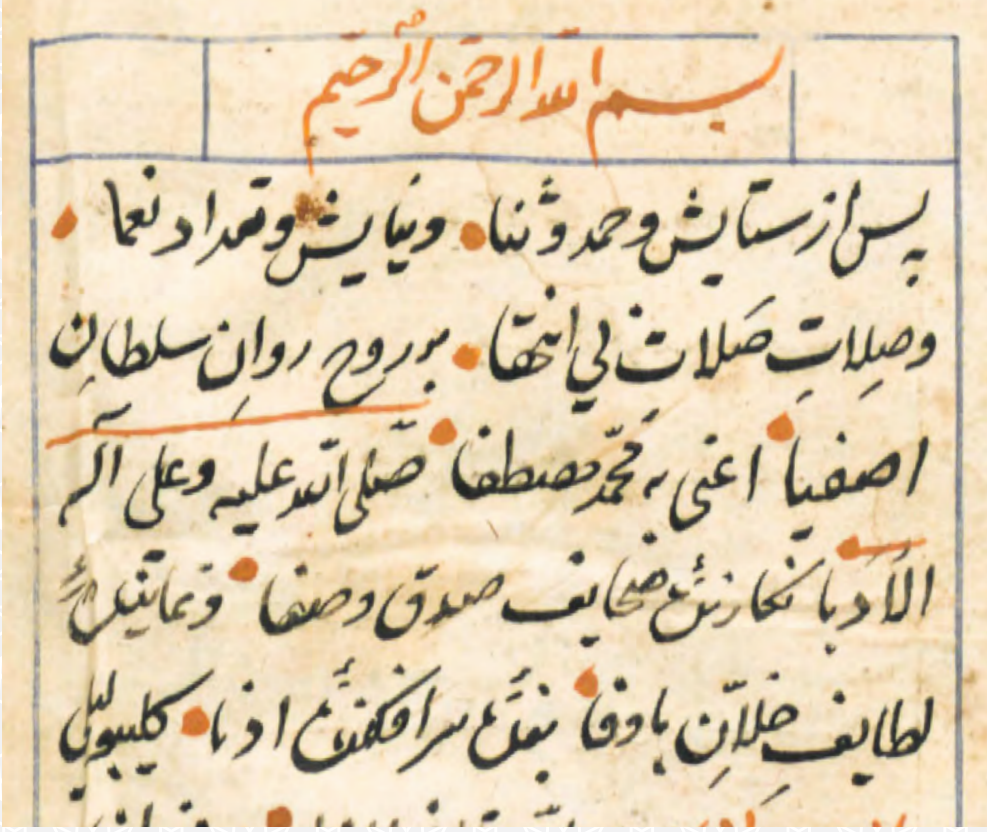 بسم الله الرحمن الرحيم
پس از ستایش و حمد و ثنا و نیایش و تعداد نعما
وصِلاتِ صَلات بی انتها بر روح روانِ سلطانِ
اصفیا اعنی به محمّد مصطفا صلّی الله علیه وعلی آله
الأدبا نکارندهٔ صحایف صدق وصفا ونمایندهٔ
لطایف خلاّنِ باوفا بندهٔ سرافکندهٔ ادنا کلیبولیلی